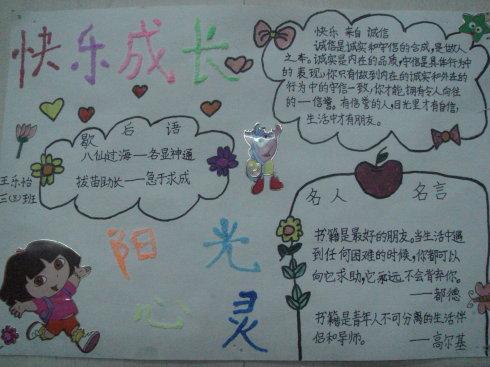 快乐成长
快乐 来自 诚信
诚信是诚实和守信的合成,是做人
之本。诚实是内在的品质,守信是具体行为中
的表现。你只有做到内在的诚实和外在的
行为中的守信一致,你才能拥有令人向往
的一一信誉。有信誉的人,目光里才有自信,
生活中才有朋友。
歇后语
八仙过海——各显神通
拔苗助长——急于求成
王乐怡
三(3)班
名人 名言
书籍是最好的朋友。当生活中遇
到任何困难的时候,你都可以
向它求助,它永远不会背弃你。
——都德
书籍是青年人不可分离的生活伴
侣和导师。——高尔基
阳光
心灵